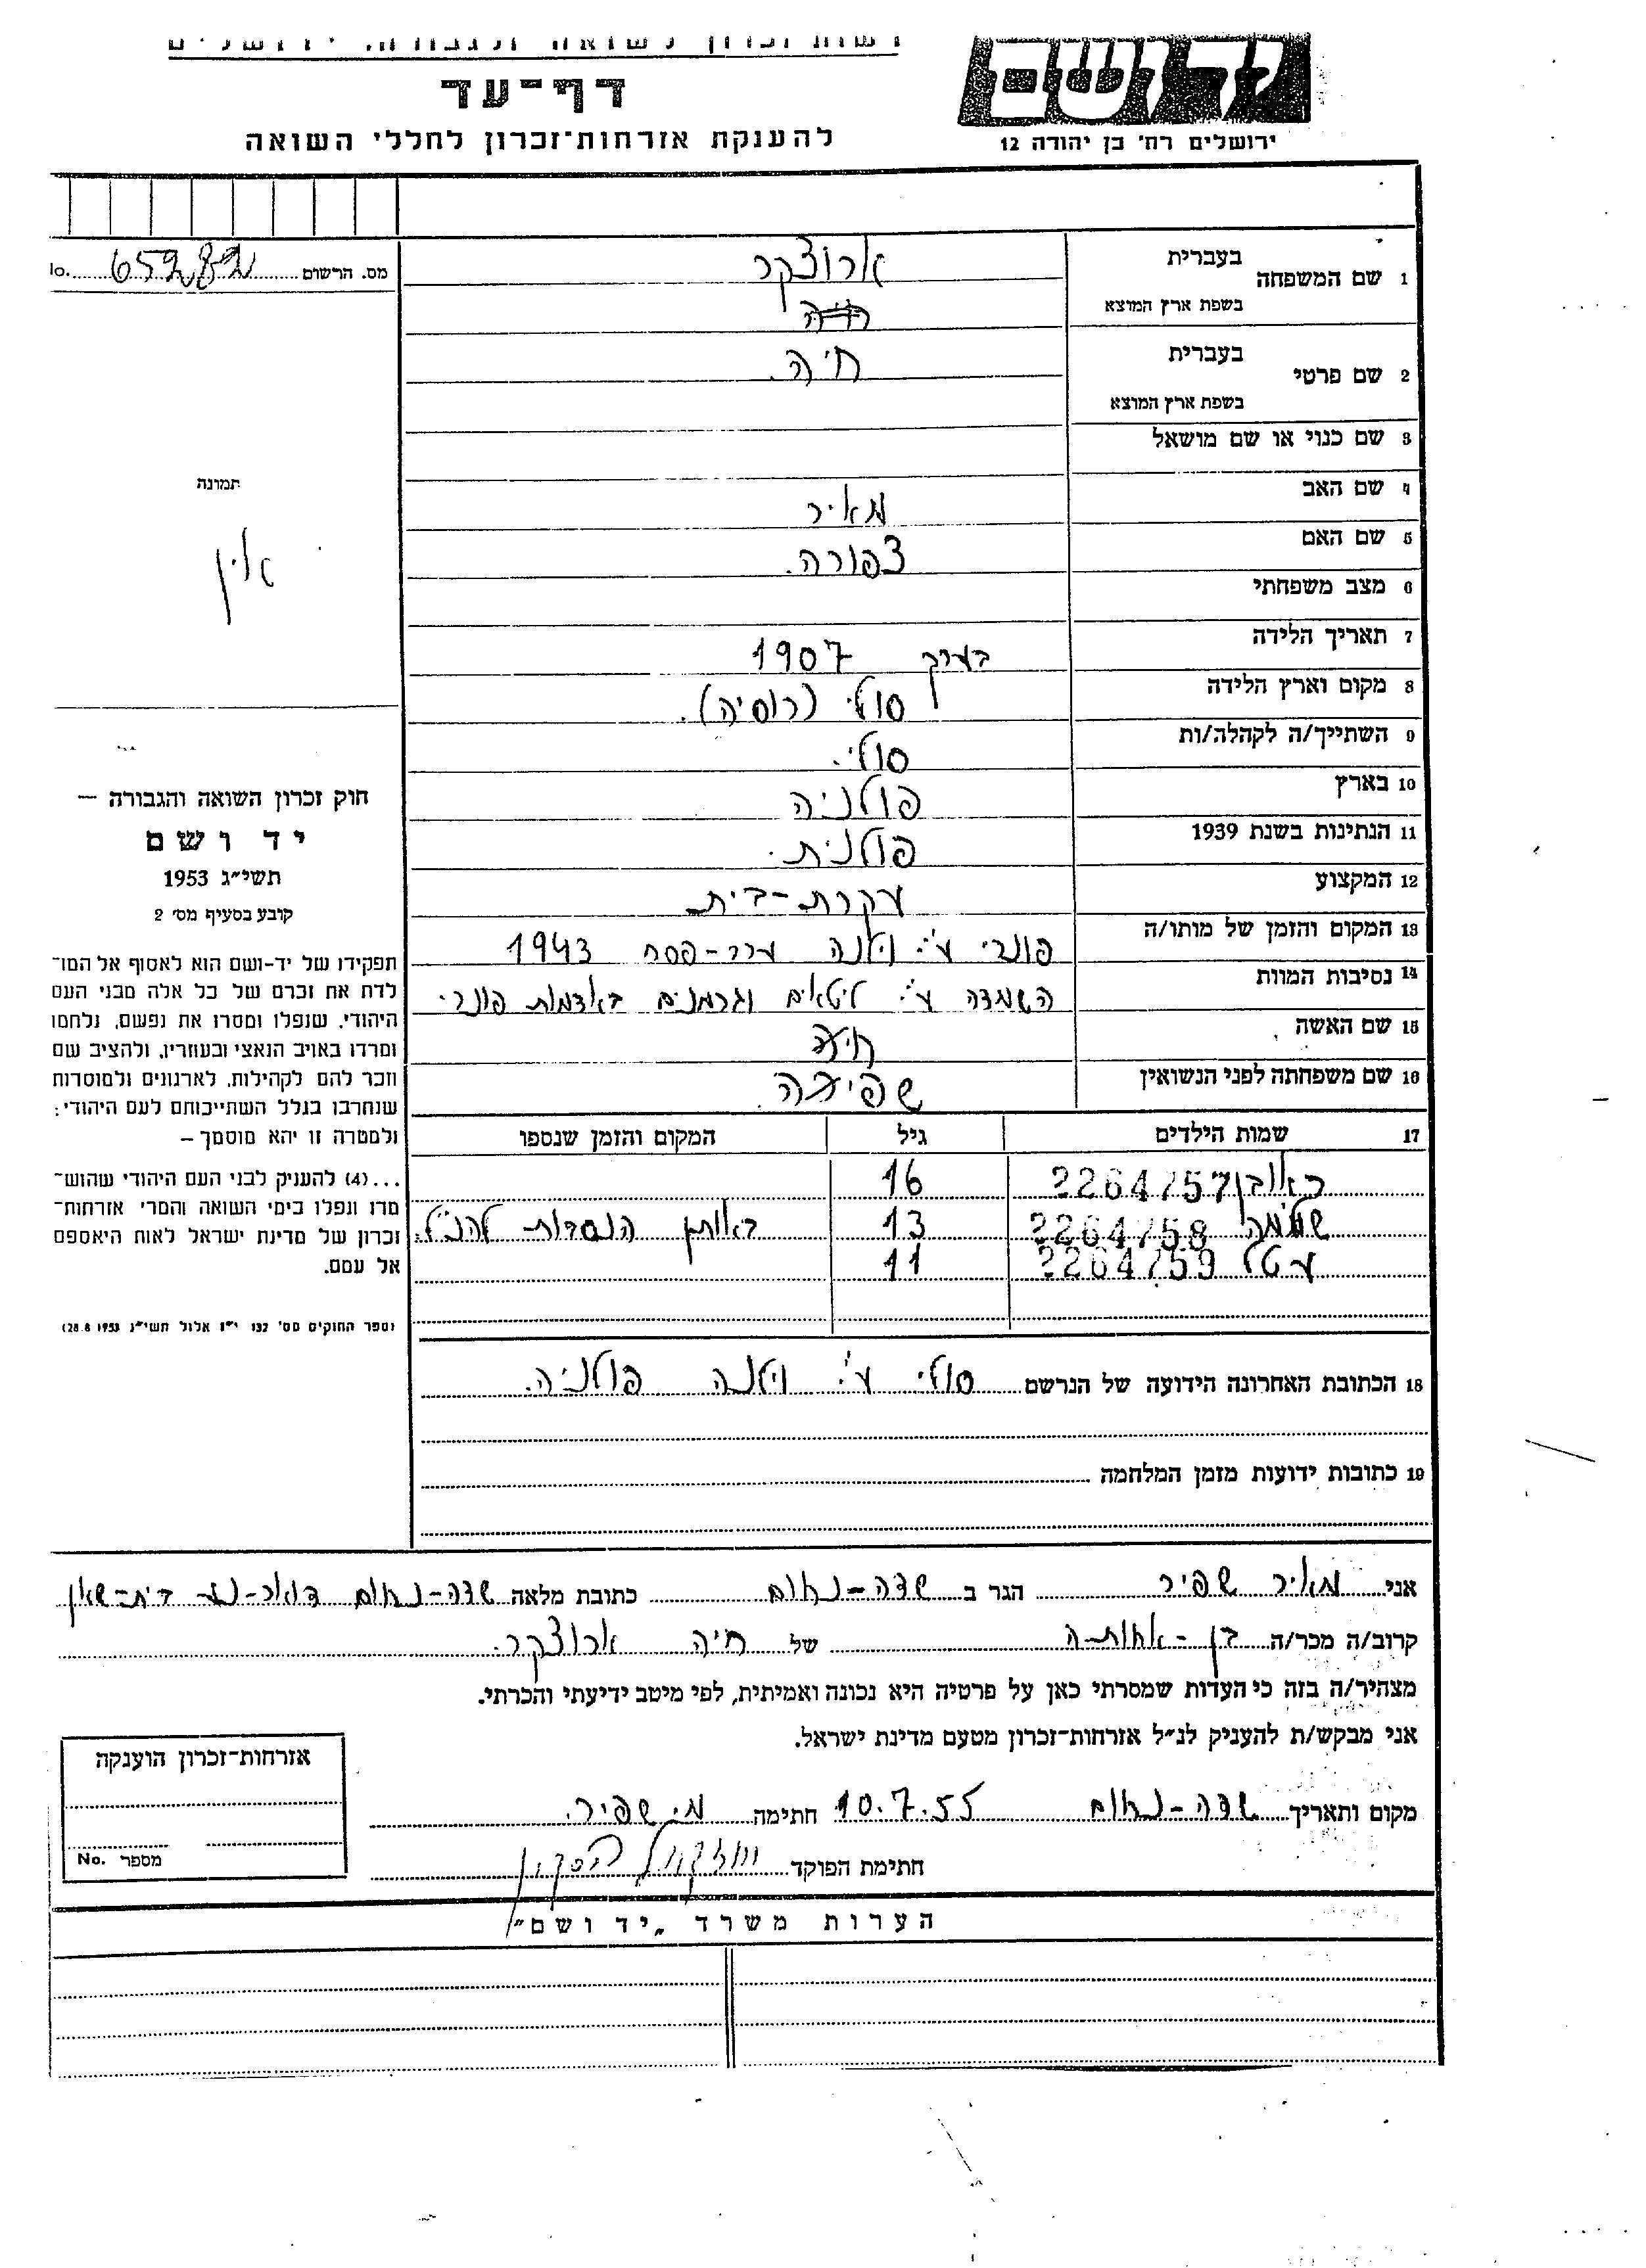 רשות זכרון לשואה ולגבורה, ירושלים
יד ושם
דף-עד
ירושלים רח' בן יהודה 12
להענקת אזרחות-זכרון לחללי השואה
מס. הרשום 65282 No.
1 שם המשפחה בעברית ארוצקר
בשפת ארץ המוצא
2 שם פרטי בעברית חיה.
בשפת ארץ המוצא
3 שם כנוי או שם מושאל
4 שם האב מאיר
5 שם האם צפורה.
6 מצב משפחתי
7 תאריך הלידה בערך 1907
8 מקום וארץ הלידה סולי (רוסיה).
9 השתייך/ה לקהלה/ות סולי.
10 בארץ פולניה
11 הנתינות בשנת 1939 פולנית.
12 המקצוע עקרת-בית
13 המקום והזמן של מותו/ה פונרי ע"י וילנה ערב-פסח 1943
14 נסיבות המוות השמדה ע"י ליטאים וגרמנים באדמות פונרי.
15 שם האשה חיה
16 שם משפחתה לפני הנשואין
17 שמות הילדים גיל המקום והזמן שנספו
ראובן 2264757 16
שלמה 2264758 13 באותן הנסבות להנ"ל.
2264759 11
18 הכתובת האחרונה הידועה של הנרשם סולי ע"י וילנה פולניה.
19 כתובות ידועות מזמן המלחמה
תמונה
אין
חוק זכרון השואה והגבורה –
יד ושם
תשי"ג 1953
קובע בסעיף מס' 2
תפקידו של יד-ושם הוא לאסוף אל המו-
לדת את זכרם של כל אלה מבני העם
היהודי, שנפלו ומסרו את נפשם, נלחמו
ומרדו באויב הנאצי ובעוזריו, ולהציב שם
וזכר להם לקהילות, לארגונים ולמוסדות
שנחרבו בגלל השתייכותם לעם היהודי:
ולמטרה זו יהא מוסמך –
...(4) להעניק לבני העם היהודי שהוש-
מדו ונפלו בימי השואה והמרי אזרחות-
זכרון של מדינת ישראל לאות היאספם
אל עמם.
(ספר החוקים מס' 132 י"ז אלול תשי"ג 28.8.1953)
אני מאיר שפיר הגר ב שדה-נחום כתובת מלאה שדה-נחום דואר-נע בית-שאן
קרוב/ה מכר/ה בן-אחותה של חיה ארוצקר.
מצהיר/ה בזה כי העדות שמסרתי כאן על פרטיה היא נכונה ואמיתית, לפי מיטב ידיעתי והכרתי.
אני מבקש/ת להעניק לנ"ל אזרחות-זכרון מטעם מדינת ישראל.
מקום ותאריך שדה-נחום 10.7.55 חתימה מ. שפיר.
חתימת הפוקד
אזרחות-זכרון הוענקה
מספר No.
הערות משרד „יד ושם"